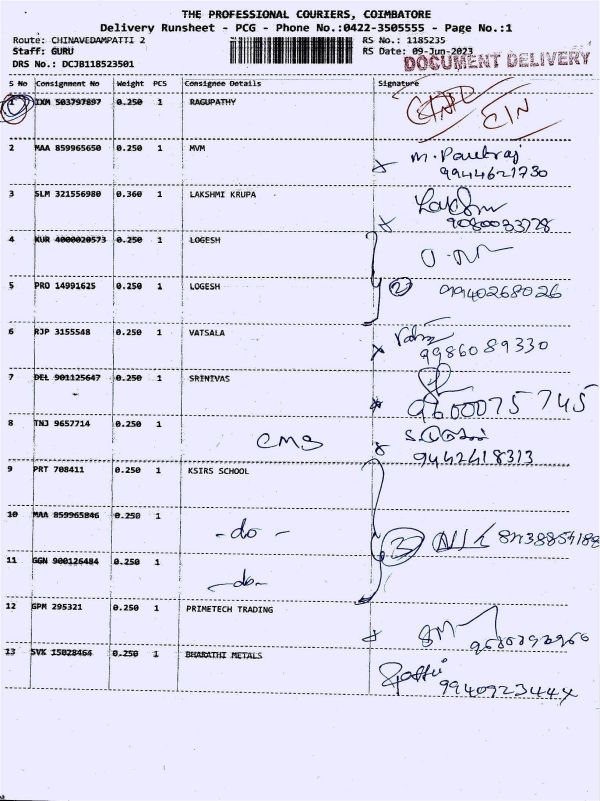 THE PROFESSIONAL COURIERS, COIMBATORE
Delivery Runsheet - PCG - Phone No.:0422-3505555 - Page No.:1
Route: CHINAVEDAMPATTI 2 RS No.: 1185235
Staff: GURU RS Date: 09-Jun-2023
DRS No.: DCJB118523501 DOCUMENT DELIVERY
S No Consignment No Weight PCS Consignee Details Signature
1 IXM 503797897 0.250 1 RAGUPATHY
CIN
2 MAA 859965650 0.250 1 MVM
9944621730
3 SLM 321556980 0.360 1 LAKSHMI KRUPA
9080033778
4 KUR 4000020573 0.250 1 LOGESH
5 PRO 14991625 0.250 1 LOGESH 2 09940268026
6 RJP 3155548 0.250 1 VATSALA
9986089330
7 DEL 901125647 0.250 1 SRINIVAS
9600075745
8 TNJ 9657714 0.250 1 CMS
9442418313
9 PRT 708411 0.250 1 KSIRS SCHOOL
10 MAA 859965846 0.250 1 -do-
3
11 GGN 900126484 0.250 1 -do-
12 GPM 295321 0.250 1 PRIMETECH TRADING
13 SVK 15028464 0.250 1 BHARATHI METALS